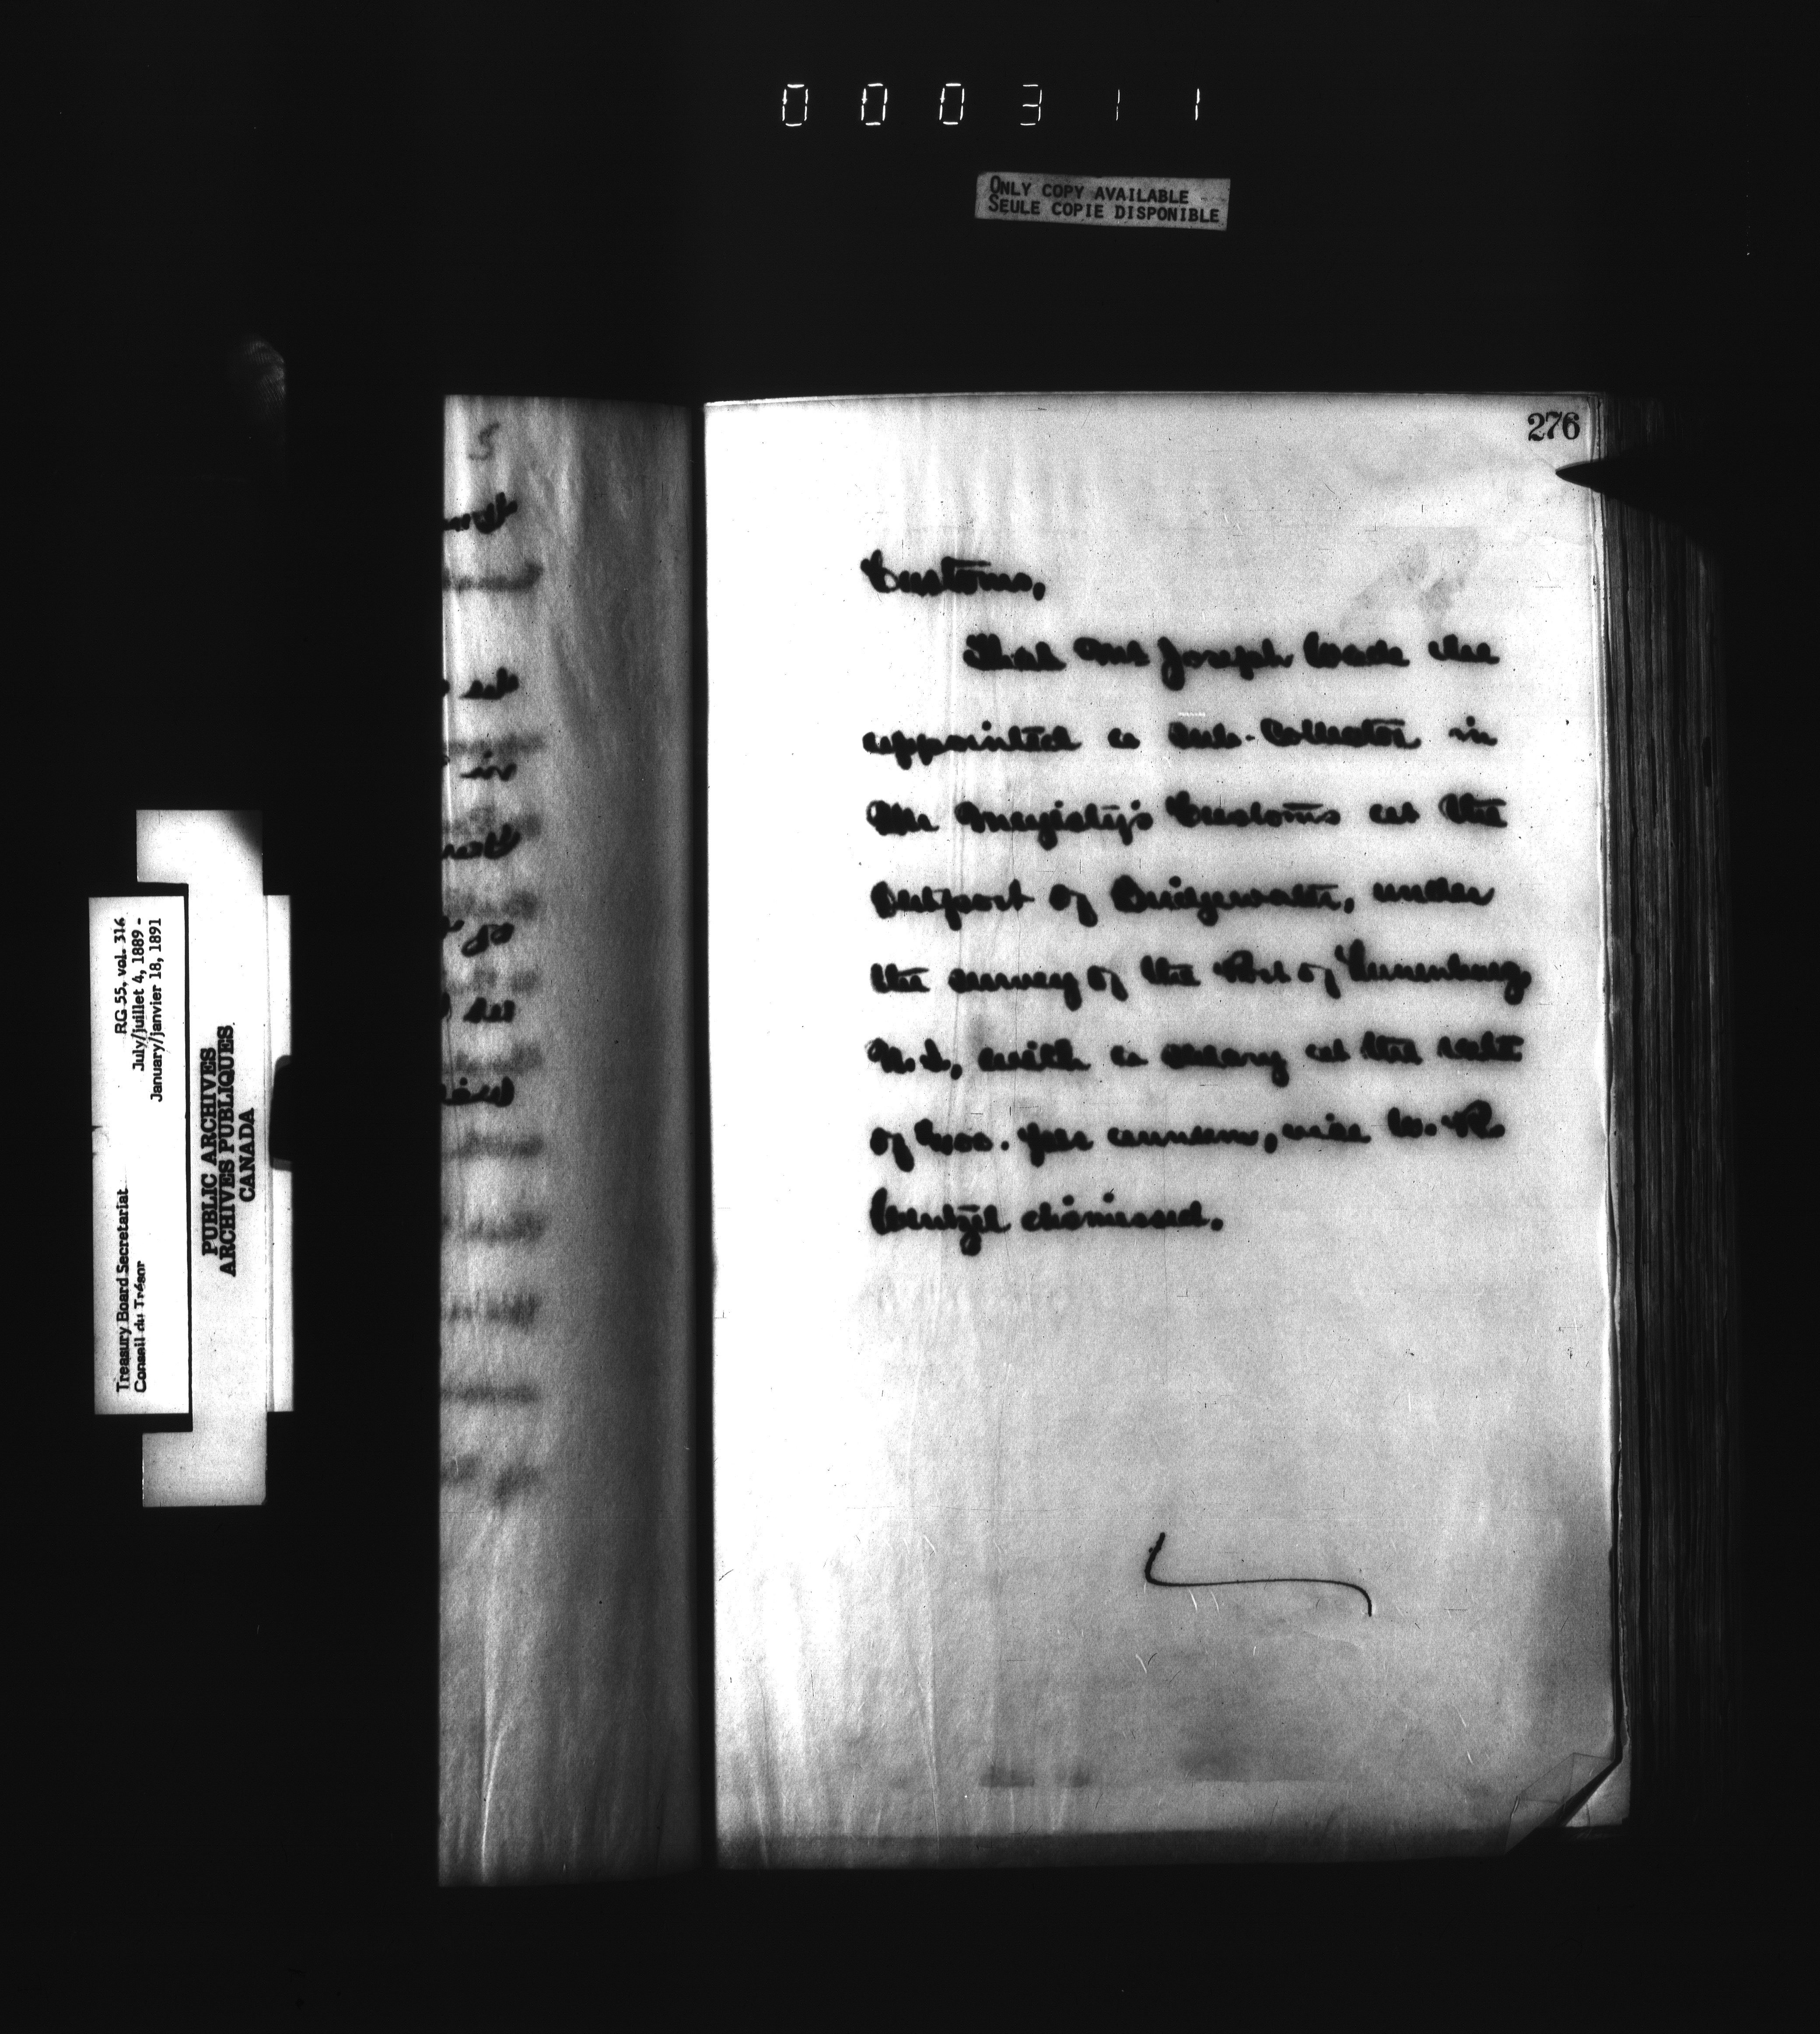 000311
ONLY COPY AVAILABLE
SEULE COPIE DISPONIBLE
276
Customs,
That Mr Joseph Wade be
appointed a Sub-Collector in
Her Majesty's Customs at the
Outport of Bridgewater, under
the survey of the Port of Lunenburg,
N.S, with a salary at the rate
of per annum, vice W. R.
Wentzel dismissed.
RG 55, vol. 316
July/juillet 4, 1889 -
January/janvier 18, 1891
Treasury Board Secretariat
Conseil du Trésor
PUBLIC ARCHIVES
ARCHIVES PUBLIQUES
CANADA